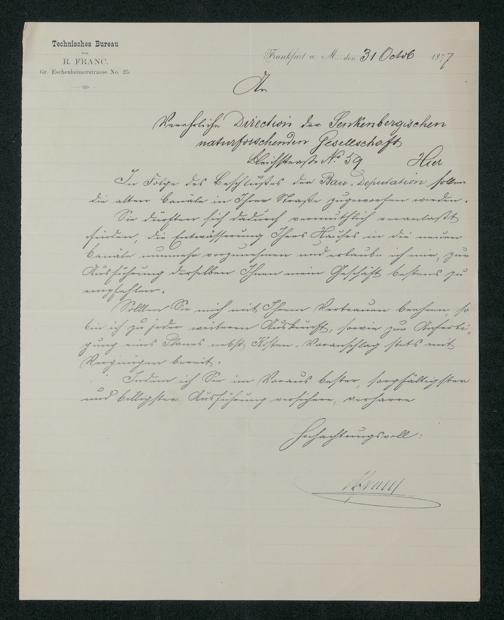 Technisches Bureau
von
R. FRANC.
Gr. Eschenheimerstrasse No. 25
Frankfurt a. M., den 31 Octob 1877
An
Verehrliche Direction der Senkenbergischen
naturforschenden Gesellschaft
Bleichstraße No 59 Hier
In Folge des Beschlußes der Bau-Deputation sollen
die alten Canäle in Ihrer Straße zugeworfen werden.
Sie dürften sich dadurch vermuthlich veranlaßt
finden, die Entwässerung Ihres Hauses in die neuen
Canäle nunmehr vorzunehmen und erlaube ich mir, zur
Ausführung derselben Ihnen mein Geschäft bestens zu
empfehlen.
Sollten Sie mich mit Ihrem Vertrauen beehren so
bin ich zu jeder weiteren Auskunft, sowie zur Anferti-
gung eines Planes nebst Kosten-Voranschlag stets mit
Vergnügen bereit.
Indem ich Sie im Voraus bester, sorgfältigster
und billigster Ausführung versichere, verharre
Hochachtungsvoll:
RFranc